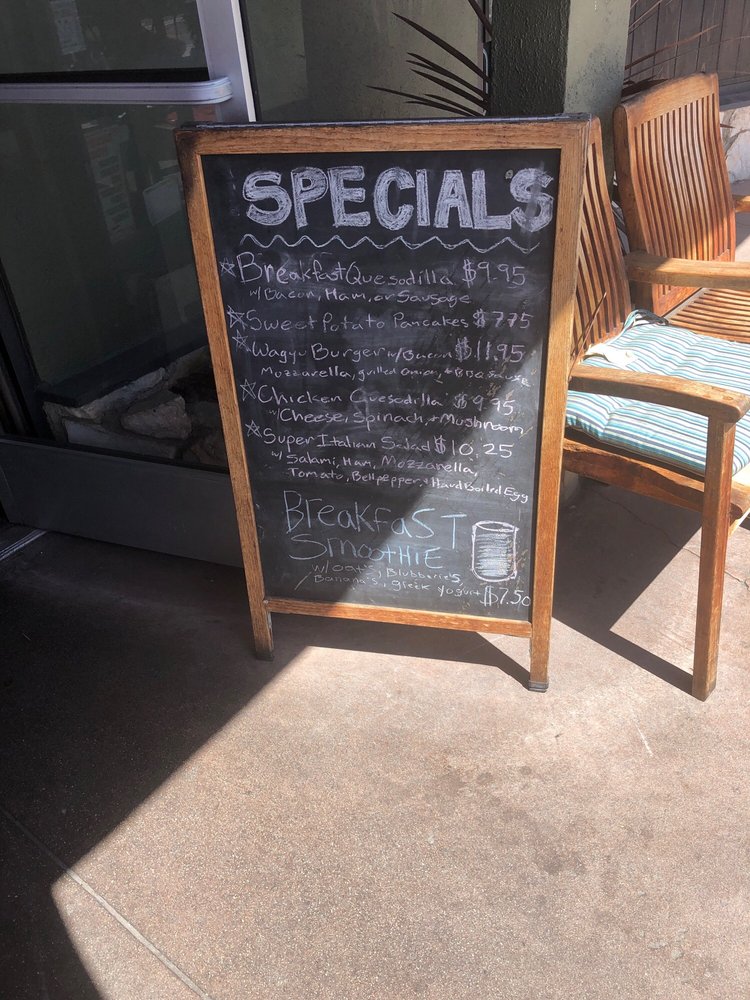 SPECIALS
☆Breakfast Quesodilla $9.95
w/ Bacon, Ham, or Sausage
☆Sweet Potato Pancakes $7.75
☆Wagyu Burger w/ Bacon $11.95
Mozzarella, grilled onion, + BBQ sause
☆Chicken Quesodilla $9.95
w/ Cheese, Spinach, + Mushroom
☆Super Italian Salad $10.25
w/ Salami, Ham, Mozzanella,
Tomato, Bellpepper, + Hard Boiled Egg
BreakfaST
SmooTHIE
w/ oats, Blubberie's,
Banana's, greek yogurt $7.50